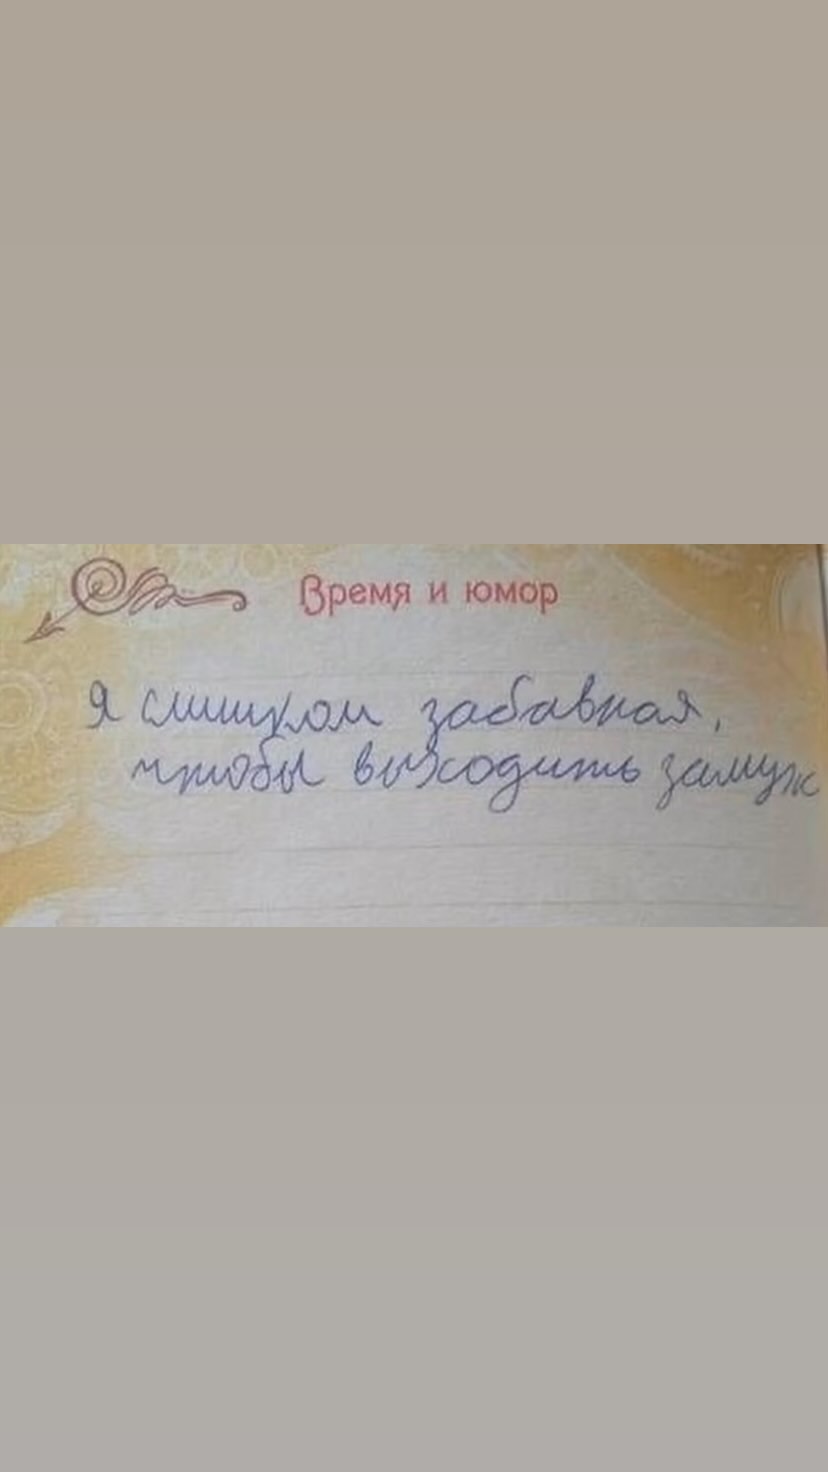 Время и юмор
Я слишком забавная,
чтобы выходить замуж